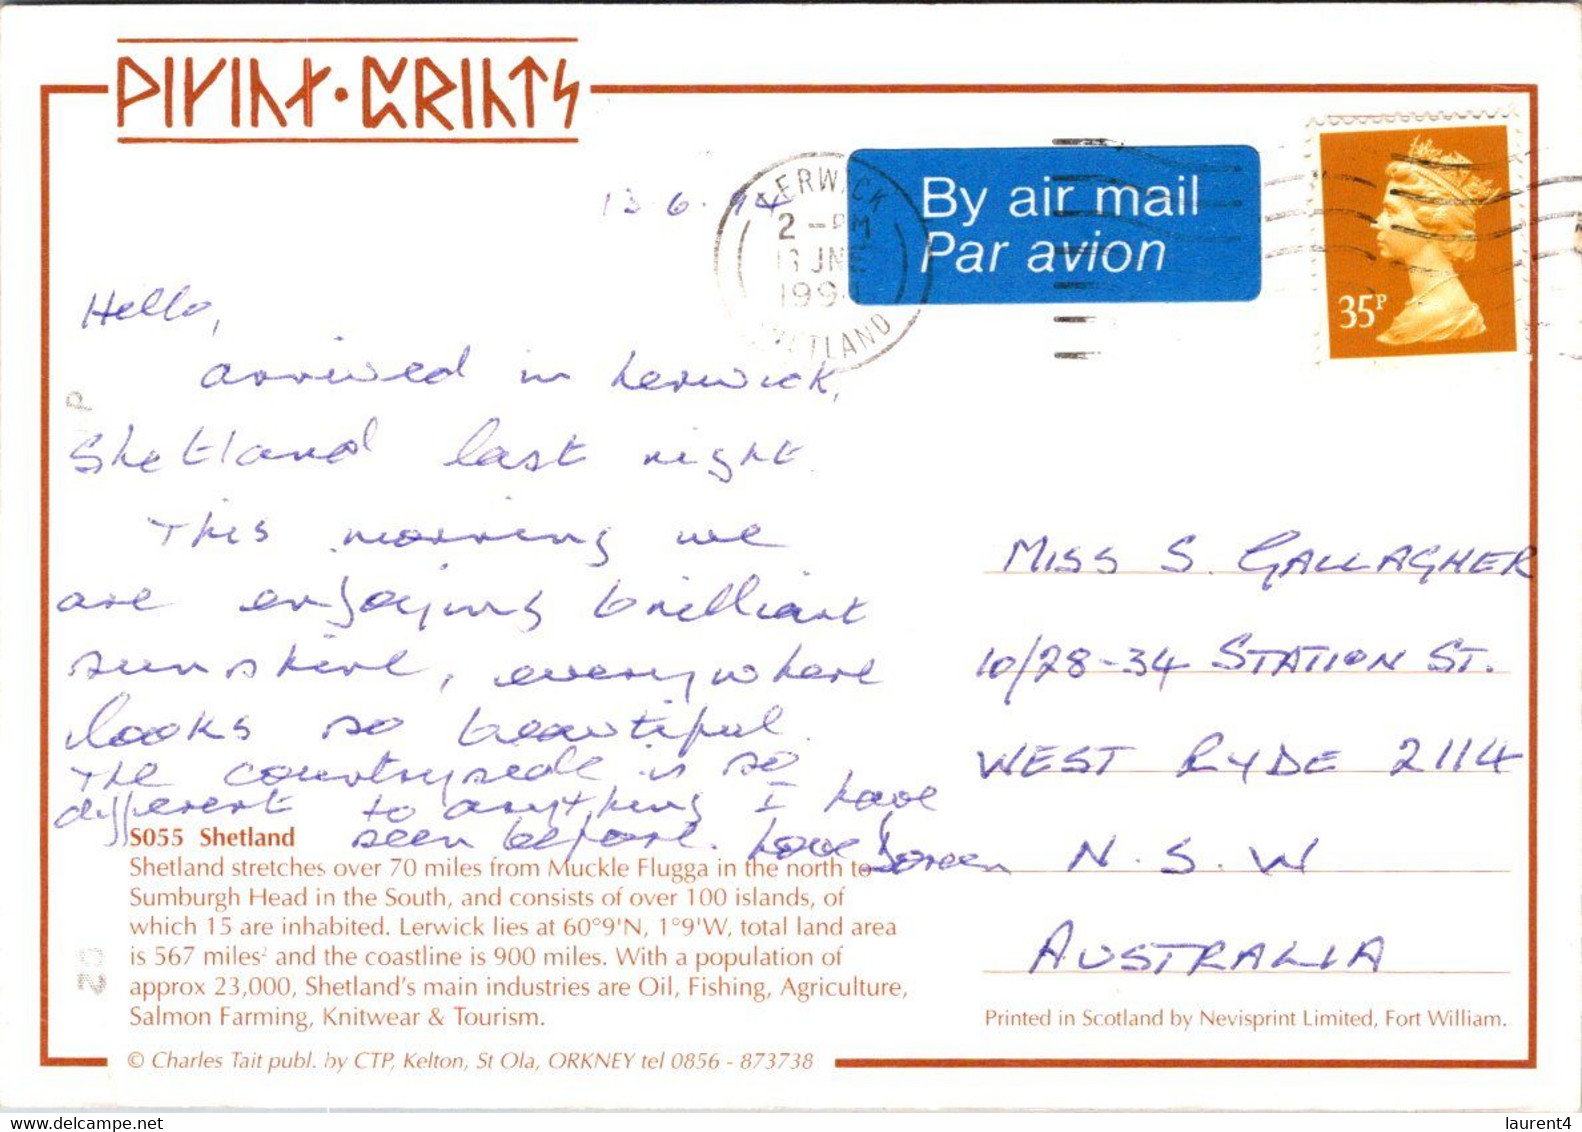 ᚹᛁᚴᛁᚢᚼ·ᛈᚱᛁᚢᛏᛋ
13.6.94
LERWICK
2 - PM
JNE
199
SHETLAND
By air mail
Par avion
35P
Hello,
arrived in Lerwick,
Shetland last night.
This morning we
are enjoying brilliant
sunshine, everywhere
looks so beautiful.
The countryside is so
different to anything I have
seen before. Love Doreen
MISS S. GALLAGHER
10/28-34 STATION ST.
WEST RYDE 2114
N.S.W
AUSTRALIA
S055 Shetland
Shetland stretches over 70 miles from Muckle Flugga in the north to
Sumburgh Head in the South, and consists of over 100 islands, of
which 15 are inhabited. Lerwick lies at 60°9'N, 1°9'W, total land area
is 567 miles² and the coastline is 900 miles. With a population of
approx 23,000, Shetland's main industries are Oil, Fishing, Agriculture,
Salmon Farming, Knitwear & Tourism.
Printed in Scotland by Nevisprint Limited, Fort William.
© Charles Tait publ. by CTP, Kelton, St Ola, ORKNEY tel 0856 - 873738
www.delcampe.net
laurent4